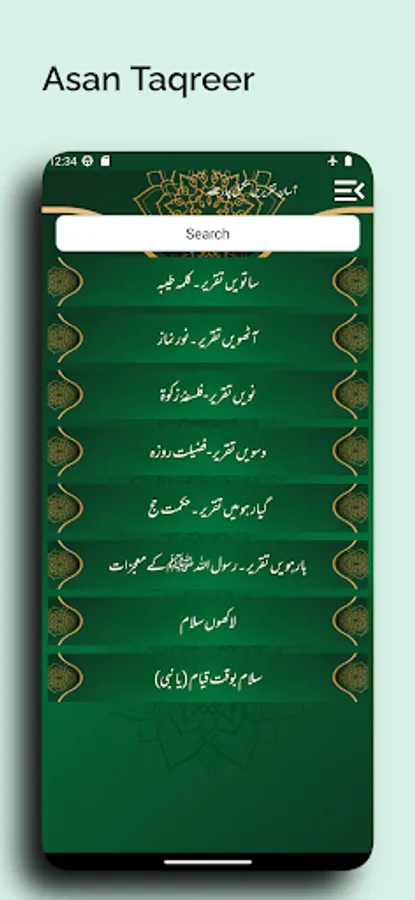 Asan Taqreer
12:34
آسان تقریریں مکمل چار حصے
Search
ساتویں تقریر ۔ کلمہ طیبہ
آٹھویں تقریر ۔ نور نماز
نویں تقریر-فلسفۂ زکوۃ
دسویں تقریر-فضیلت روزہ
گیارہویں تقریر ۔ حکمت حج
بارہویں تقریر ۔ رسول اللہ ﷺ کے معجزات
لاکھوں سلام
سلام بوقت قیام (یا نبی)